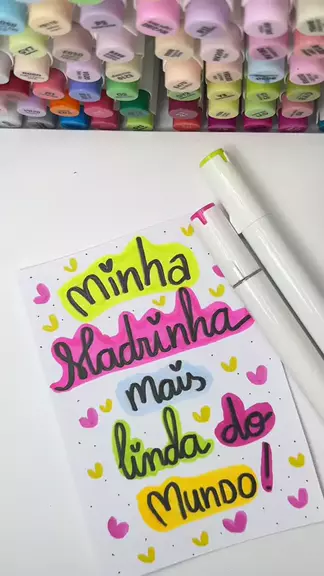 Minha
Madrinha
mais
linda do
Mundo!